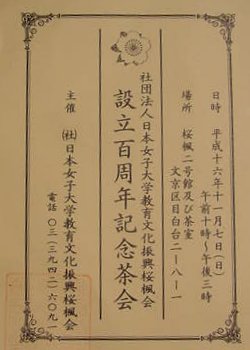 日時 平成十六年十一月七日(日)
午前十時〜午後三時
場所 桜楓二号館及び茶室
文京区目白台二-八-一
社団法人日本女子大学教育文化振興桜楓会
設立百周年記念茶会
主催 (社)日本女子大学教育文化振興桜楓会
電話 〇三(三九四二)六〇九一